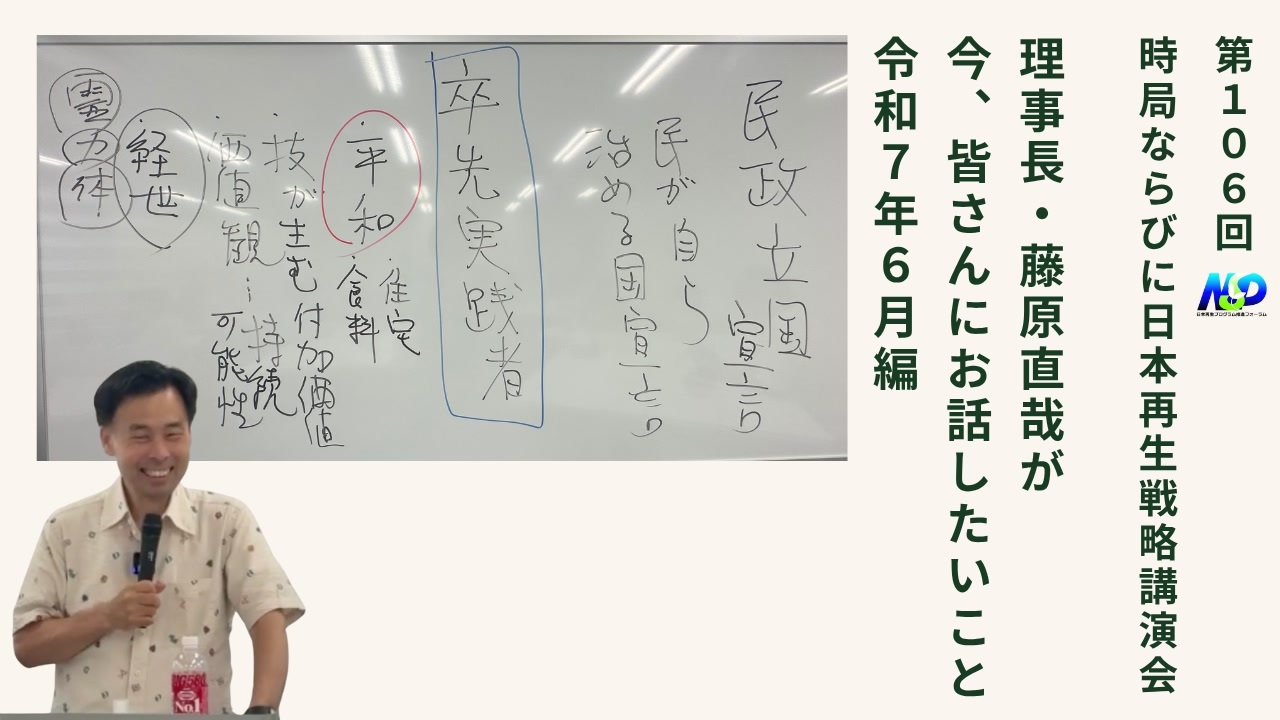 第106回
時局ならびに日本再生戦略講演会
理事長・藤原直哉が
今、皆さんにお話したいこと
令和7年6月編
日本再生プログラム推進フォーラム
民政立国宣言
民が自ら
治める国宣言
卒先実践者
平和
住宅
食料
技が生む付加価値
価値観…持続
可能性
経世
霊
力
体
No.1